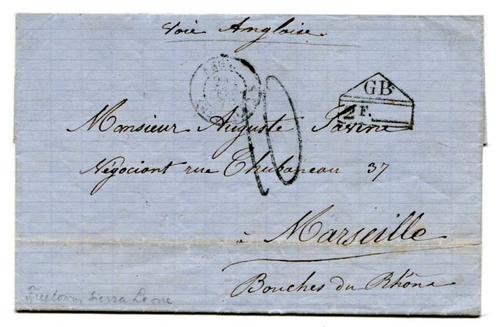 Voie Anglaise
GB
2F.
Monsieur Auguste
Négociant rue 37
à Marseille
Bouches du Rhône
Freetown, Sierra Leone